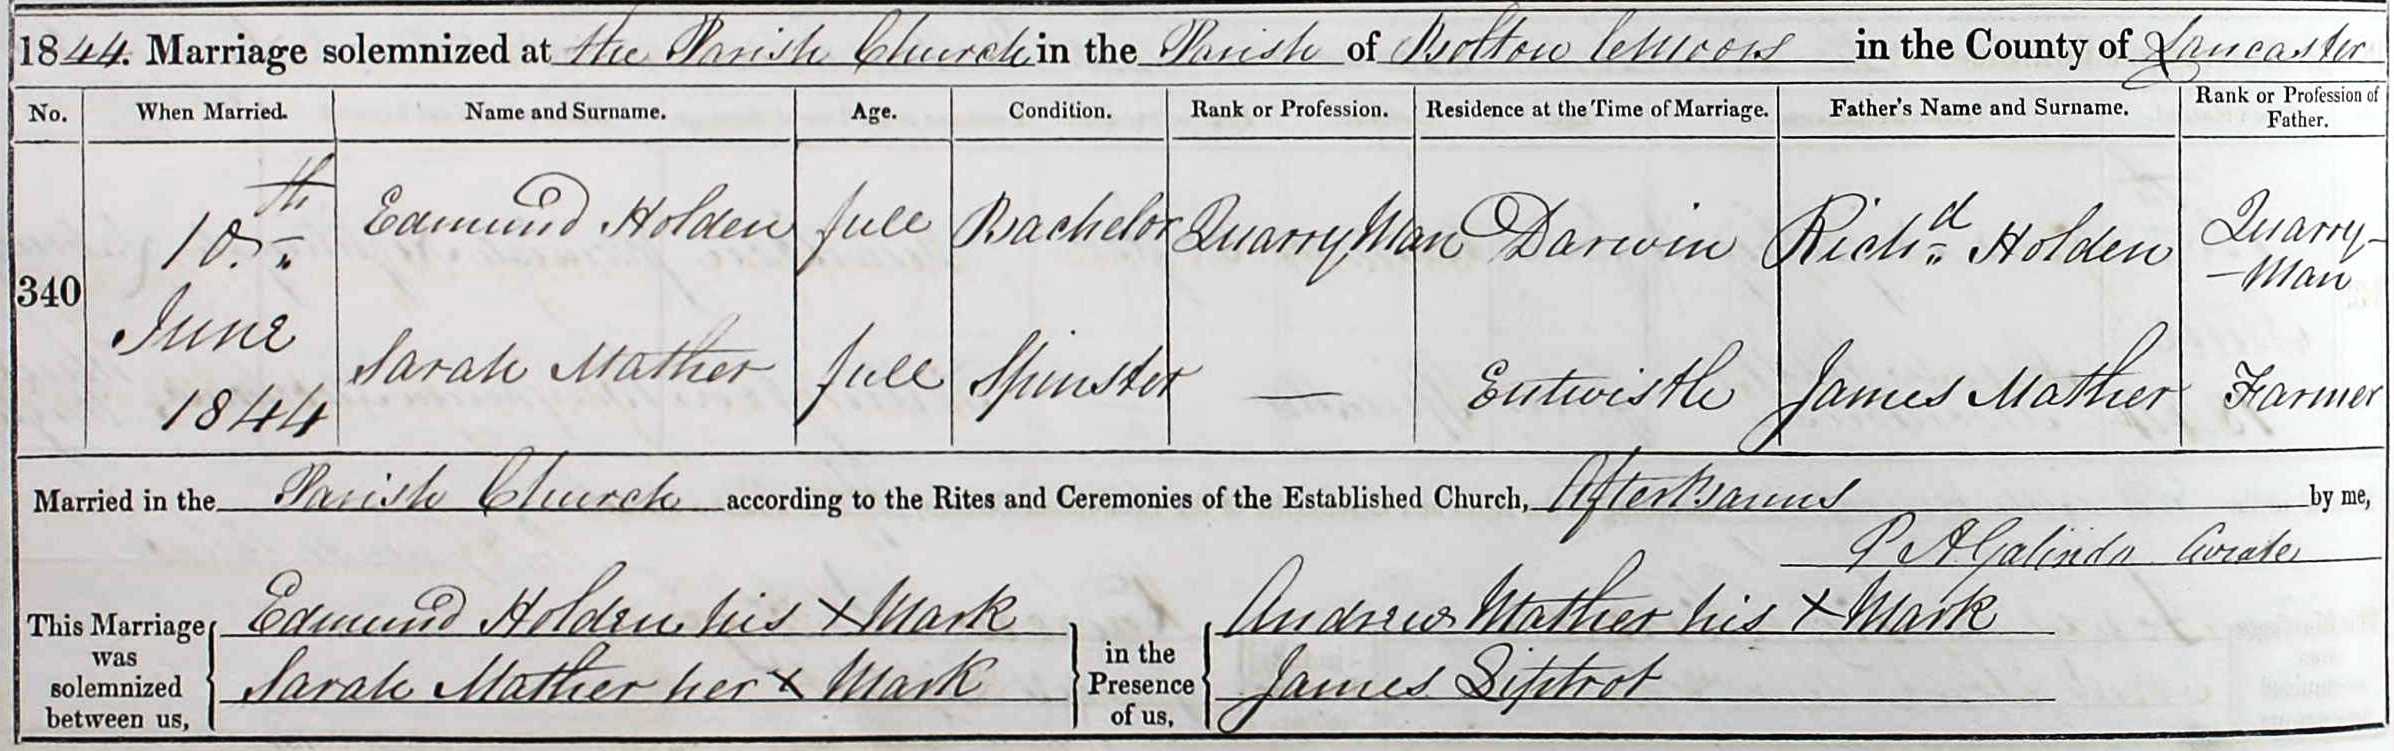 1844. Marriage solemnized at the Parish Church in the Parish of Bolton le Moors in the County of Lancaster
No. When Married. Name and Surname. Age. Condition. Rank or Profession. Residence at the Time of Marriage. Father's Name and Surname. Rank or Profession of Father.
340
10th
June
1844
Edmund Holden full Bachelor Quarry Man Darwin Richd Holden Quarry-
-Man
Sarah Mather full Spinster — Entwistle James Mather Farmer
Married in the Parish Church according to the Rites and Ceremonies of the Established Church, After Banns by me,
P A Galindo Curate
This Marriage was solemnized between us,
Edmund Holden his X Mark
Sarah Mather her X Mark
in the Presence of us,
Andrew Mather his X Mark
James Siptrot